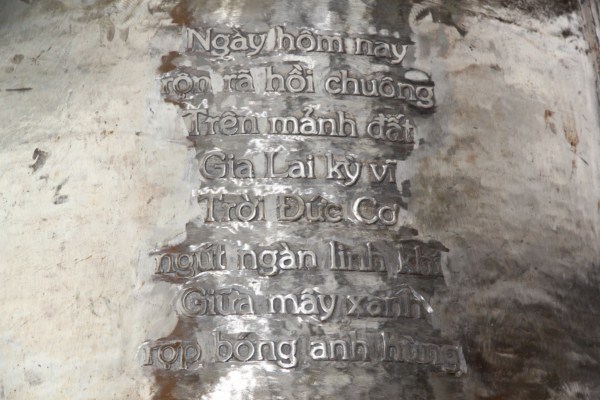 Ngày hôm nay
rộn rã hồi chuông
Trên mảnh đất
Gia Lai kỳ vĩ
Trời Đức Cơ
ngút ngàn linh khí
Giữa mây xanh
rợp bóng anh hùng